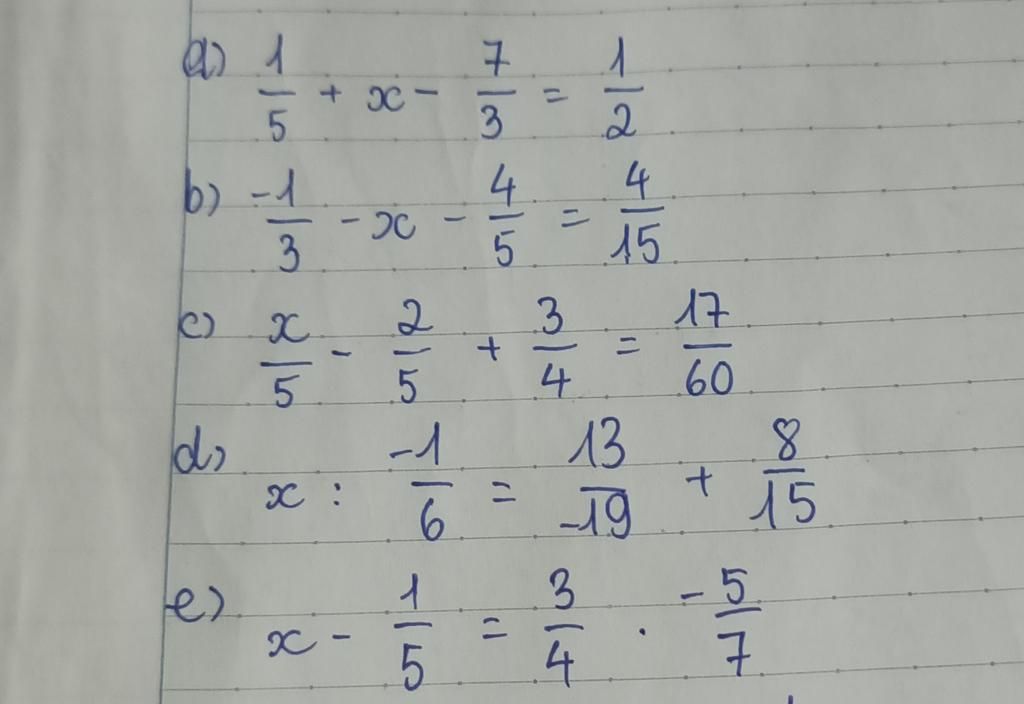 a) 1/5 + x - 7/3 = 1/2
b) -1/3 - x - 4/5 = 4/15
c) x/5 - 2/5 + 3/4 = 17/60
d) x : -1/6 = 13/-19 + 8/15
e) x - 1/5 = 3/4 . -5/7